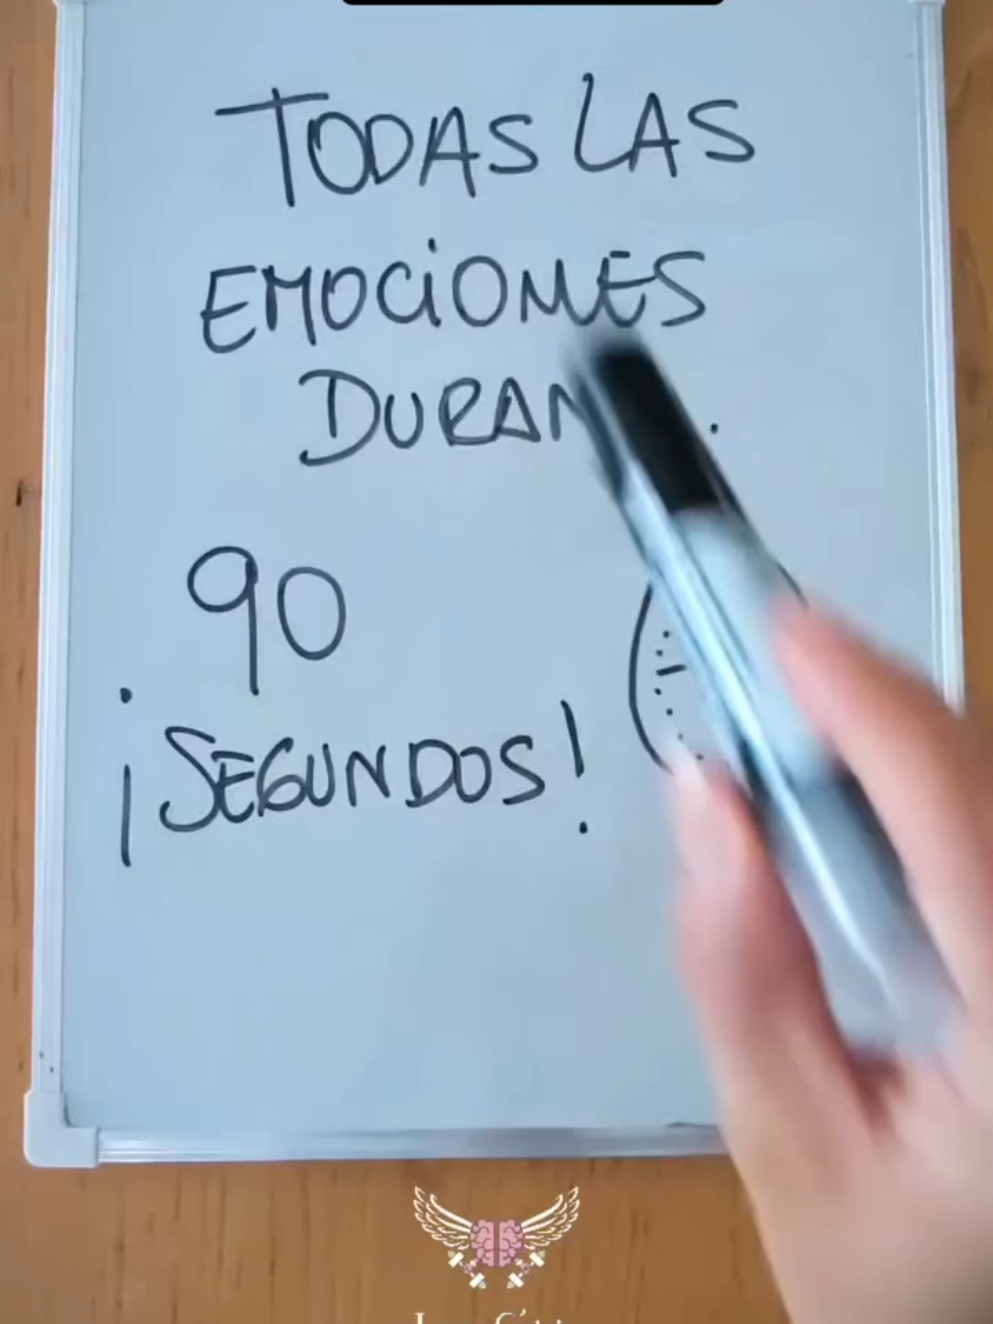 TODAS LAS
EMOCiONES
90
¡SEGUNDOS!